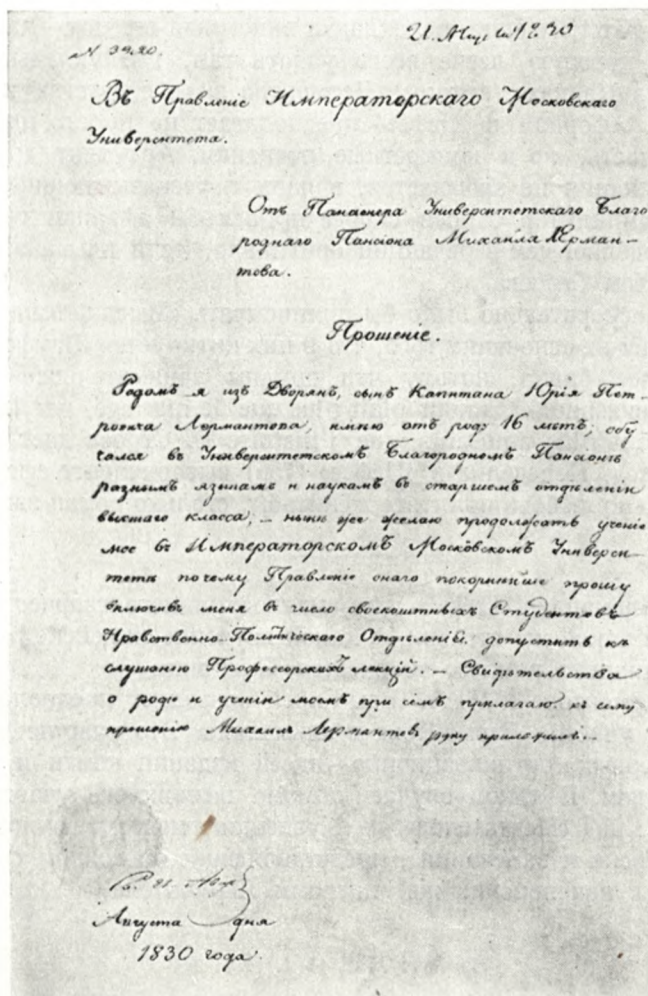 21. Авгус 1830
N 3920.
Въ Правленіе Императорскаго Московскаго
Университета.
Отъ Пансіонера Университетскаго Благо
роднаго Пансіона Михайла Лерман-
това.
Прошеніе.
Родомъ я изъ Дворянъ, сынъ Капитана Юрія Пет-
ровича Лермантова; имѣю отъ роду 16 лѣтъ; обу-
чался въ Университетскомъ Благородномъ Пансіонѣ
разнымъ языкамъ и наукамъ въ старшемъ отдѣленіи
высшаго класса; – нынѣ же желаю продолжать ученіе
мое въ Императорскомъ Московскомъ Универси-
тетѣ почему Правленіе онаго покорнѣйше прошу
включивъ меня въ число своекоштныхъ Студентовъ
Нравственно-Политическаго Отдѣленія, допустить къ
слушанію Профессорскихъ лекцій. – Свидѣтельства
о родѣ и ученіи моемъ при семъ прилагаю. къ сему
прошенію Михаилъ Лермантовъ руку приложилъ. –
Августа дня
1830 года.